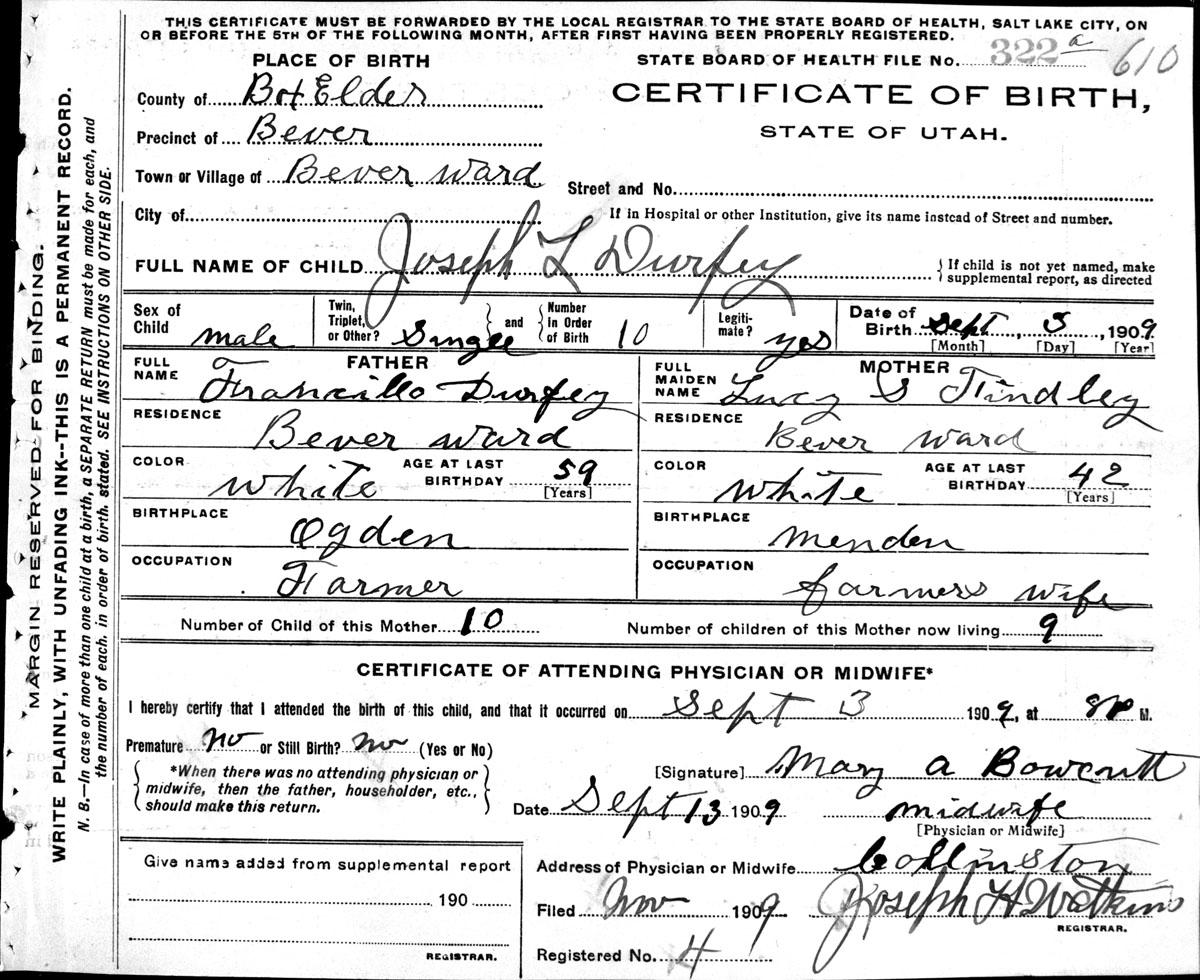 THIS CERTIFICATE MUST BE FORWARDED BY THE LOCAL REGISTRAR TO THE STATE BOARD OF HEALTH, SALT LAKE CITY, ON
OR BEFORE THE 5TH OF THE FOLLOWING MONTH, AFTER FIRST HAVING BEEN PROPERLY REGISTERED.
PLACE OF BIRTH
STATE BOARD OF HEALTH FILE No. 322 a 610
County of Bx Elder
CERTIFICATE OF BIRTH,
STATE OF UTAH.
Precinct of Bever
Town or Village of Bever ward
Street and No.
City of
If in Hospital or other Institution, give its name instead of Street and number.
FULL NAME OF CHILD Joseph L Durfey
If child is not yet named, make
supplemental report, as directed
Sex of Child male
Twin, Triplet, or Other? Singee and Number in Order of Birth 10
Legiti-mate? yes
Date of Birth Sept, 3, 1909
[Month] [Day] [Year]
FATHER
FULL NAME Francillo Durfey
RESIDENCE
Bever ward
COLOR white
AGE AT LAST BIRTHDAY 59
[Years]
BIRTHPLACE
Ogden
OCCUPATION
Farmer
MOTHER
FULL MAIDEN NAME Lucy S Findley
RESIDENCE
Bever ward
COLOR white
AGE AT LAST BIRTHDAY 42
[Years]
BIRTHPLACE
Menden
OCCUPATION
farmers wife
Number of Child of this Mother 10
Number of children of this Mother now living 9
CERTIFICATE OF ATTENDING PHYSICIAN OR MIDWIFE*
I hereby certify that I attended the birth of this child, and that it occurred on Sept 3 1909, at 8P M.
Premature no or Still Birth? no (Yes or No)
*When there was no attending physician or
midwife, then the father, householder, etc.,
should make this return.
[Signature] Mary a Bowcutt
Date Sept 13 1909
midwife
[Physician or Midwife]
Give name added from supplemental report
190
REGISTRAR.
Address of Physician or Midwife Collinston
Filed Nov 1909 Joseph H Watkins
REGISTRAR.
Registered No. 4
MARGIN RESERVED FOR BINDING.
WRITE PLAINLY, WITH UNFADING INK--THIS IS A PERMANENT RECORD.
N. B.—In case of more than one child at a birth, a SEPARATE RETURN must be made for each, and
the number of each, in order of birth, stated. SEE INSTRUCTIONS ON OTHER SIDE.